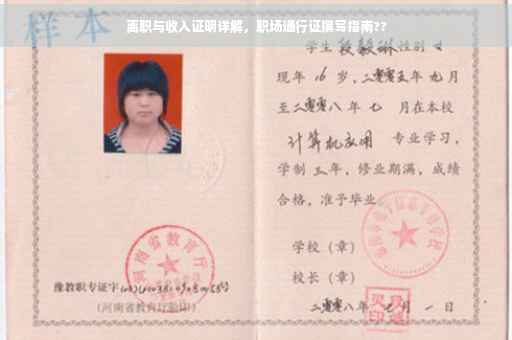 离职与收入证明详解，职场通行证撰写指南??
样本
学生 段毅琳 性别 女
现年 16 岁，二零零五年 九 月
至二零零八 年 七 月在本校
计算机应用 专业学习，
学制 三 年，修业期满，成绩
合格，准予毕业。
学校（章）
校长（章）
二零零八 年 月 一 日
河南省教育厅
豫教职专证字
（河南省教育厅验印）